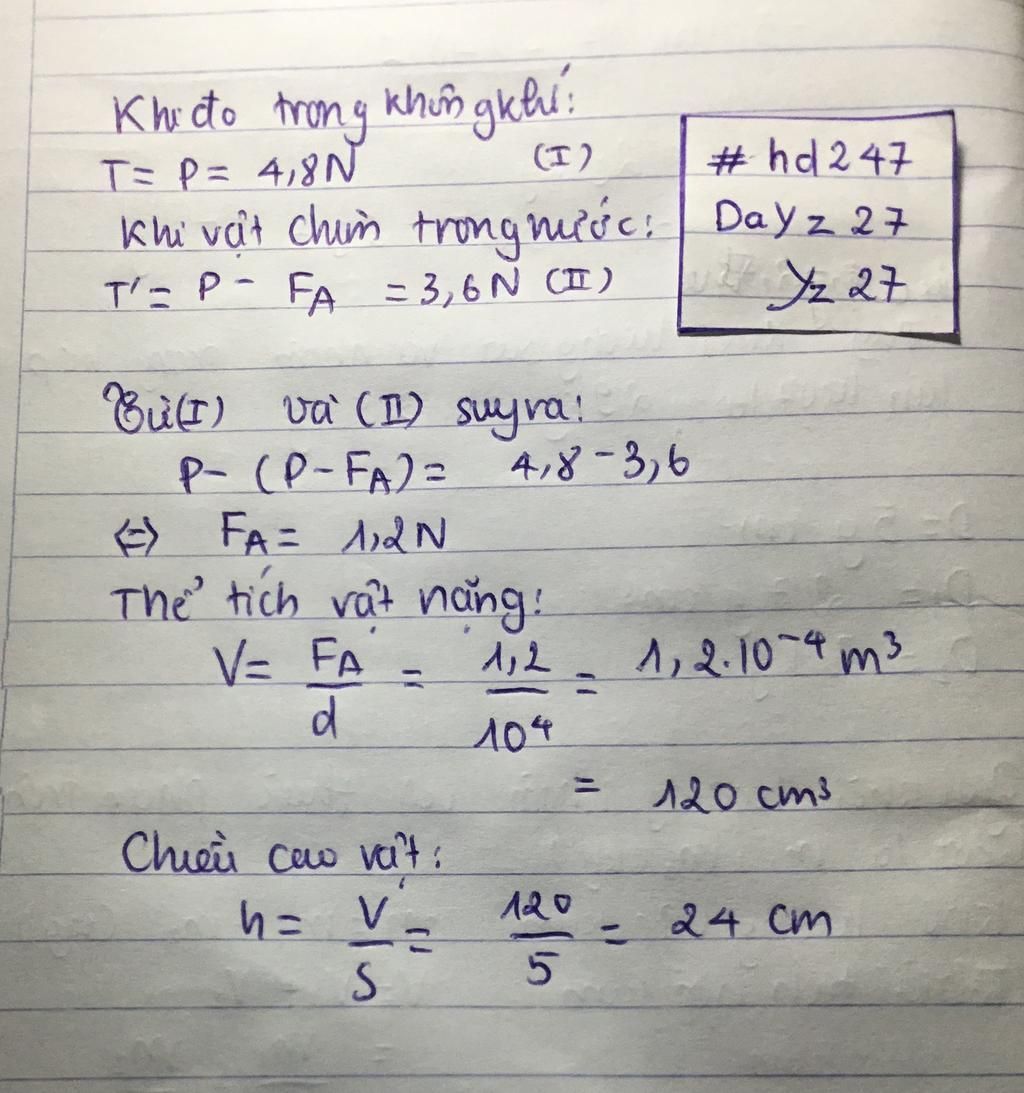 Khi đo trong không khí:
T = P = 4,8N (I)
Khi vật chìm trong nước:
T' = P - FA = 3,6N (II)
# hd247
Dayz 27
Yz 27
Từ (I) và (II) suy ra:
P - (P - FA) = 4,8 - 3,6
<=> FA = 1,2N
Thể tích vật nặng:
V = FA/d = 1,2/10⁴ = 1,2.10⁻⁴ m³
= 120 cm³
Chiều cao vật:
h = V/S = 120/5 = 24 cm